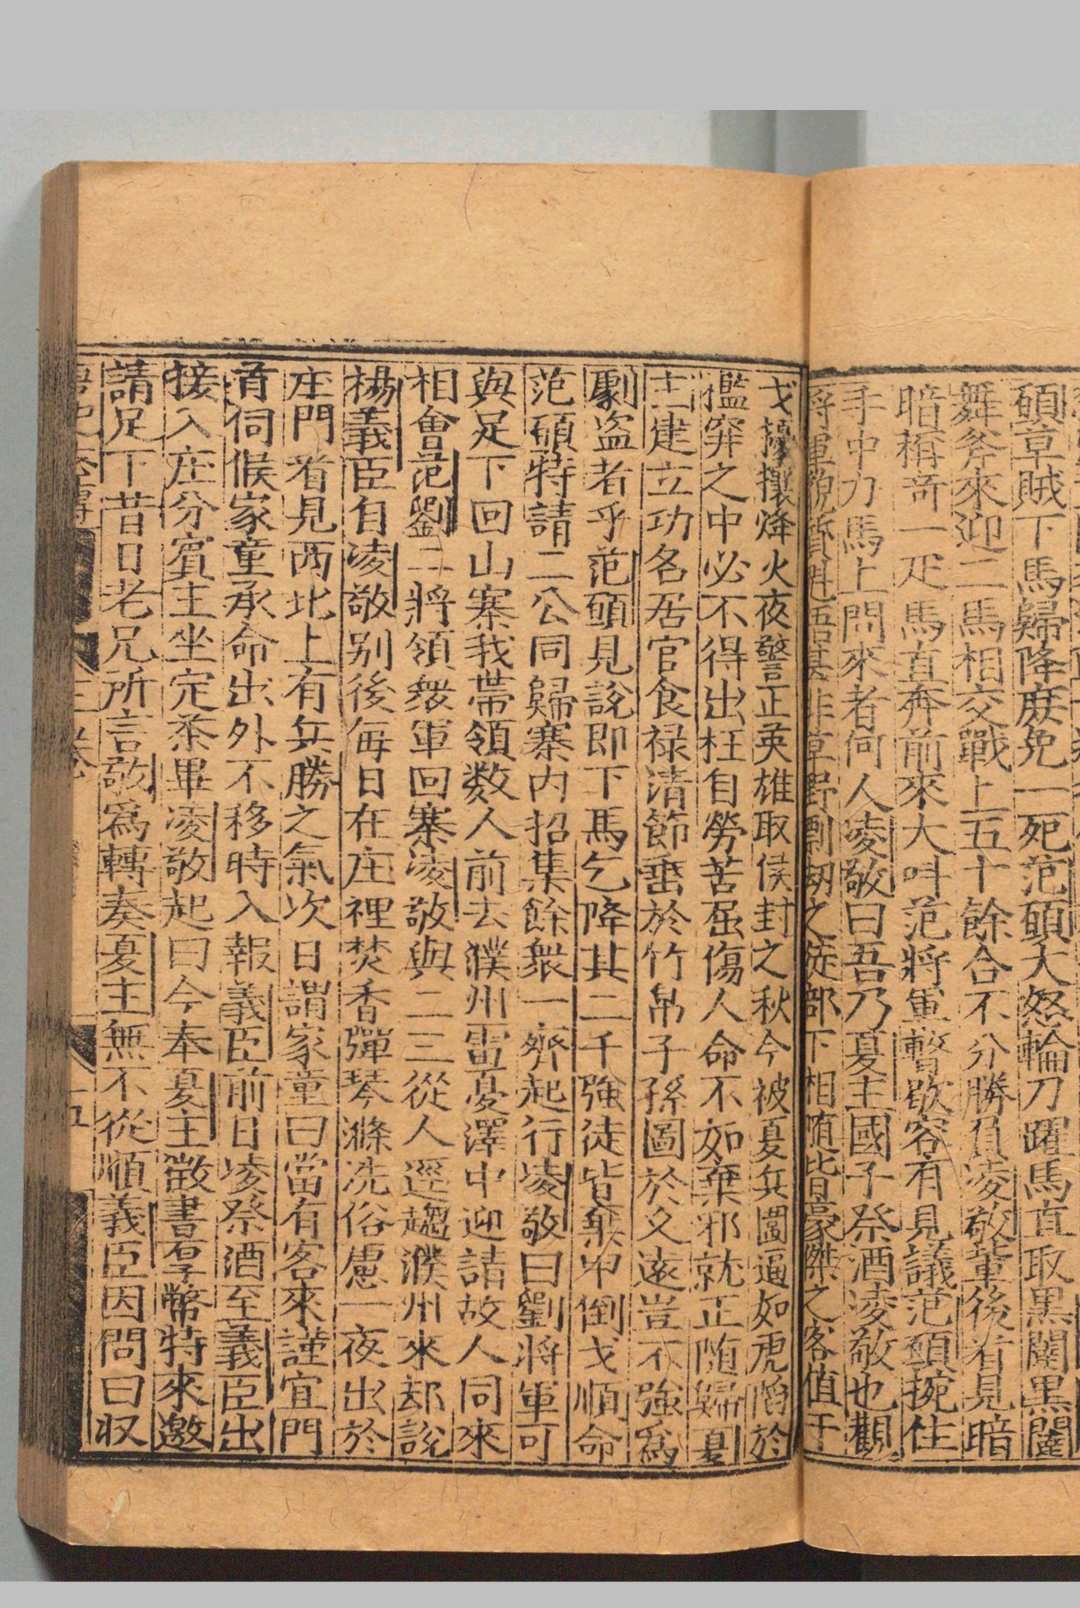 碩草賊下馬歸降庻免一死范碩大怒輪刀躍馬直取黑闥黑闥
舞斧來迎二馬相交戰上五十餘合不分勝負凌敬董後有見暗
暗稱奇一疋馬直奔前來大呌范將軍暫歇容有見議范碩捥住
手中刀馬上問來者何人凌敬曰吾乃夏主國子祭酒凌敬也觀
將軍觀質魁梧甚非草野剽刼之徒部下相随皆豪傑之客值干
戈擾攘烽火夜警正英雄取侯封之秋今被夏兵圍逼如虎陷於
檻穽之中必不得出枉自勞苦屈傷人命不如棄邪就正随歸夏
主建立功名居官食禄清節垂於竹帛子孫圖於久遠豈不強爲
劇盗者乎范碩見說即下馬乞降其二千強徒皆棄甲倒戈順命
范碩特請二公同歸寨内招集餘衆一齊起行凌敬曰劉將軍可
與足下回山寨我帶領数人前去濮州雷夏澤中迎請故人同來
相會范劉二將領衆軍回寨凌敬與二三從人逕趨濮州來却說
楊義臣自凌敬别後每日在庄裡焚香彈琴滌洗俗慮一夜出於
庄門看見西北上有兵勝之氣次日謂家童曰當有客來謹宜門
首伺候家童承命出外不移時入報義臣前日凌祭酒至義臣出
接入庄分賓主坐定茶畢凌敬起曰今奉夏主徵書厚幣特來邀
請足下昔日老兄所言敬爲轉奏夏主無不從順義臣因問曰収